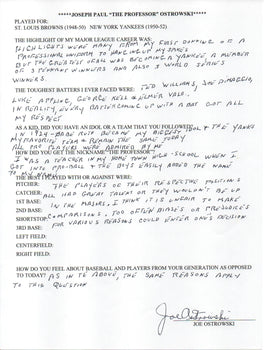 *****JOSEPH PAUL "THE PROFESSOR" OSTROWSKI*****
PLAYED FOR:
ST. LOUIS BROWNS (1948-50) NEW YORK YANKEES (1950-52)
THE HIGHLIGHT OF MY MAJOR LEAGUE CAREER WAS:
HIGHLIGHTS WERE MANY FROM MY FIRST DONNING OF A
PROFESSIONAL UNIFORM TO HANGING UP MY SPIKES
BUT THE GREATEST OF ALL WAS BECOMING A YANKEE, A MEMBER
OF 3 PENNANT WINNERS AND ALSO 3 WORLD SERIES
WINNERS.
THE TOUGHEST BATTERS I EVER FACED WERE: TED WILLIAMS, JOE DIMAGGIO,
LUKE APPLING, GEORGE KELL & ELMER VALO,
IN REALITY, EVERY BATTER COMING UP WITH A BAT GOT ALL
MY RESPECT
AS A KID, DID YOU HAVE AN IDOL OR A TEAM THAT YOU FOLLOWED?
IN 1934 BABE RUTH BECAME MY BIGGEST IDOL & THE YANKS
MY FAVORITE TEAM & REMAIN THE SAME TODAY
ALL PRO PLAYERS WERE ADMIRED BY ME
HOW DID YOU GET THE NICKNAME "THE PROFESSOR"?
I WAS A TEACHER IN MY HOME TOWN HIGH-SCHOOL WHEN I
GOT INTO PRO-BALL & THE BOYS EASILY ADDED THE NAME
TO MY NAME
THE BEST PLAYED WITH OR AGAINST WERE:
PITCHER: THE PLAYERS OF THEIR RESPECTIVE POSITIONS
CATCHER: ALL HAD GREAT TALENT OR THEY WOULDN'T BE UP
1ST BASE: IN THE MAJORS, I THINK IT IS UNFAIR TO MAKE
2ND BASE: COMPARISONS. TOO OFTEN BIASES OR PREJUDICES
SHORTSTOP: FOR VARIOUS REASONS COULD ENTER ONE'S DECISION
3RD BASE:
LEFT FIELD:
CENTERFIELD:
RIGHT FIELD:
HOW DO YOU FEEL ABOUT BASEBALL AND PLAYERS FROM YOUR GENERATION AS OPPOSED
TO TODAY? AS IN THE ABOVE, THE SAME REASONS APPLY
TO THIS QUESTION
Joe Ostrowski
JOE OSTROWSKI